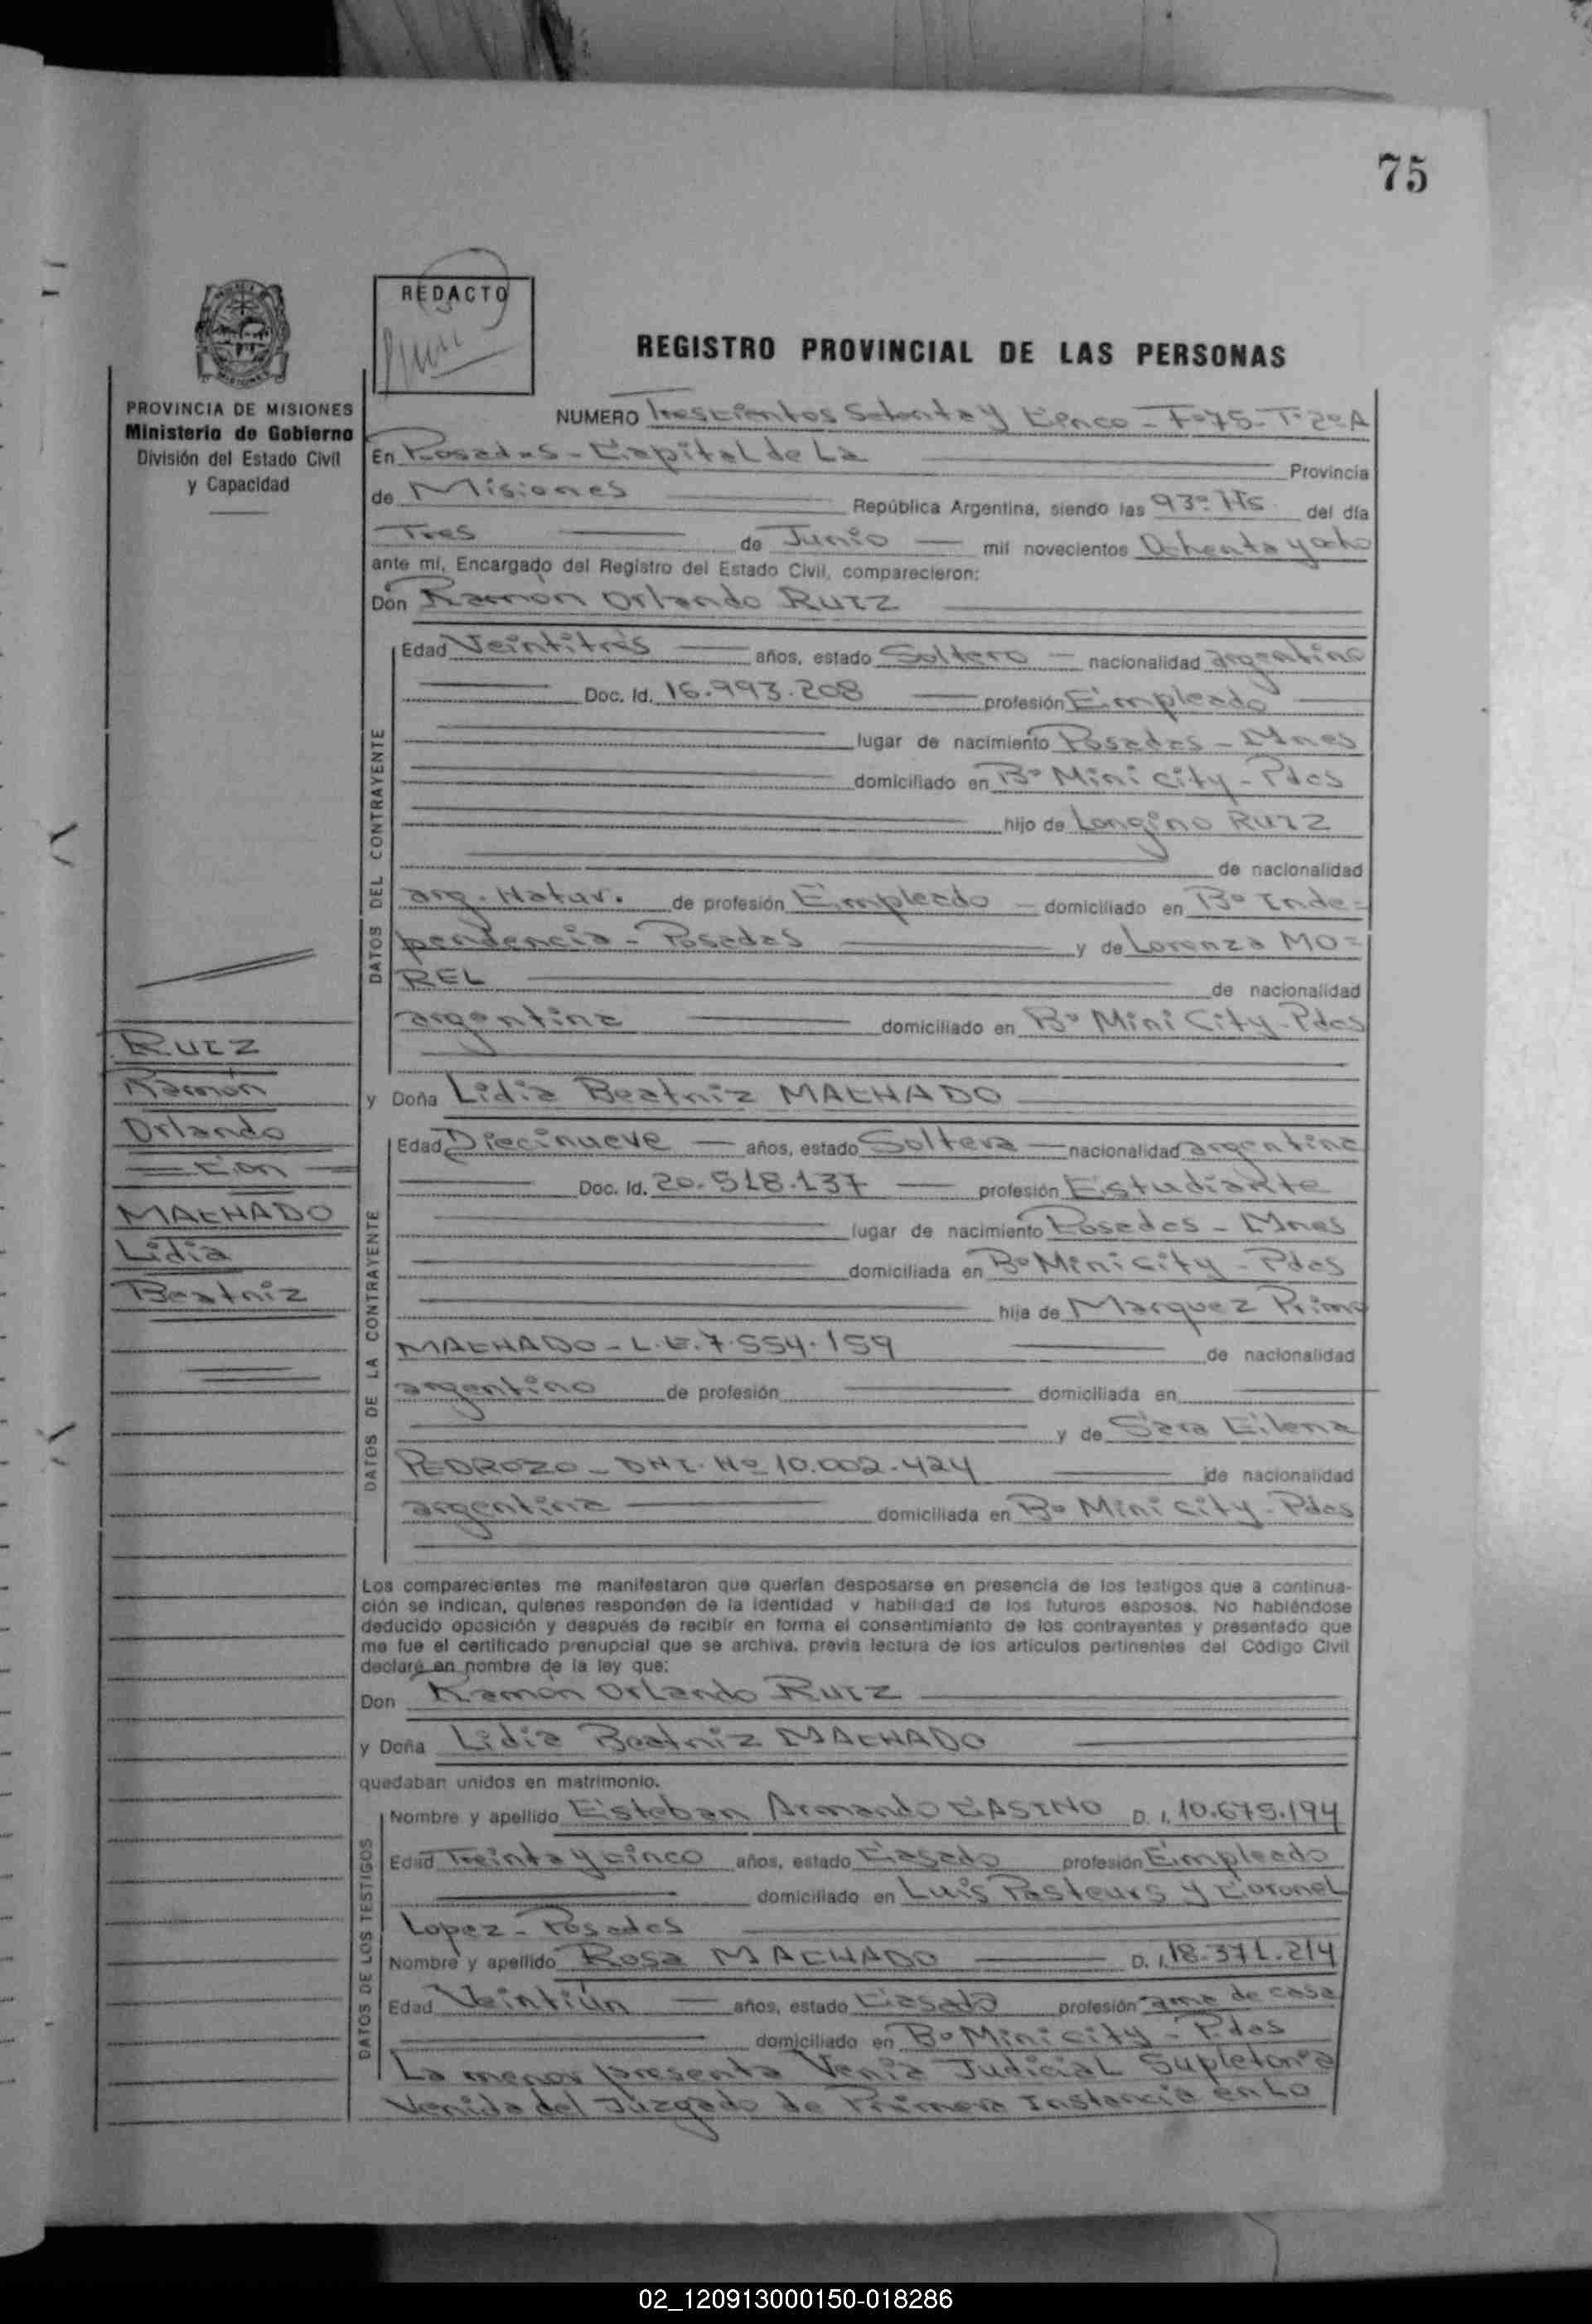 75
REDACTO
REGISTRO PROVINCIAL DE LAS PERSONAS
PROVINCIA DE MISIONES
Ministerio de Gobierno
División del Estado Civil
y Capacidad
NUMERO Trescientos Setenta y Cinco - Fº 75 - Tº 2º A
En Posadas - Capital de La Provincia
de Misiones República Argentina, siendo las 9 30 Hs del día
Tres de Junio mil novecientos Ochenta y ocho
ante mí, Encargado del Registro del Estado Civil, comparecieron:
Don Ramon Orlando RUIZ
DATOS DEL CONTRAYENTE
Edad Veintitrés años, estado Soltero nacionalidad argentino
Doc. Id. 16.993.208 profesión Empleado
lugar de nacimiento Posadas - Mnes
domiciliado en Bº Mini City - Pdas
hijo de Longino RUIZ
de nacionalidad
arg. Natur. de profesión Empleado domiciliado en Bº Inde=
pendencia - Posadas y de Lorenza MO=
REL de nacionalidad
argentina domiciliado en Bº Mini City - Pdas
y Doña Lidia Beatriz MACHADO
DATOS DE LA CONTRAYENTE
Edad Diecinueve años, estado Soltera nacionalidad argentina
Doc. Id. 20.518.137 profesión Estudiante
lugar de nacimiento Posadas - Mnes
domiciliada en Bº Mini City - Pdas
hija de Marquez Primo
MACHADO - L.E. 7.554.159 de nacionalidad
argentino de profesión domiciliada en
y de Sara Elena
PEDROZO - DNI. Nº 10.002.424 de nacionalidad
argentina domiciliada en Bº Mini City - Pdas
RUIZ
Ramón
Orlando
= Con =
MACHADO
Lidia
Beatriz
Los comparecientes me manifestaron que querían desposarse en presencia de los testigos que a continua-
ción se indican, quienes responden de la identidad y habilidad de los futuros esposos. No habiéndose
deducido oposición y después de recibir en forma el consentimiento de los contrayentes y presentado que
me fue el certificado prenupcial que se archiva, previa lectura de los artículos pertinentes del Código Civil
declaré en nombre de la ley que:
Don Ramón Orlando RUIZ
y Doña Lidia Beatriz MACHADO
quedaban unidos en matrimonio.
DATOS DE LOS TESTIGOS
Nombre y apellido Esteban Armando CASINO D. I. 10.675.194
Edad Treinta y cinco años, estado Casado profesión Empleado
domiciliado en Luis Pasteurs y Coronel
Lopez - Posadas
Nombre y apellido Rosa MACHADO D. I. 18.371.214
Edad Veintiún años, estado Casada profesión ama de casa
domiciliado en Bº Mini City - Pdas
La menor presenta Venia Judicial Supletoria
Venida del Juzgado de Primera Instancia en Lo
02_120913000150-018286